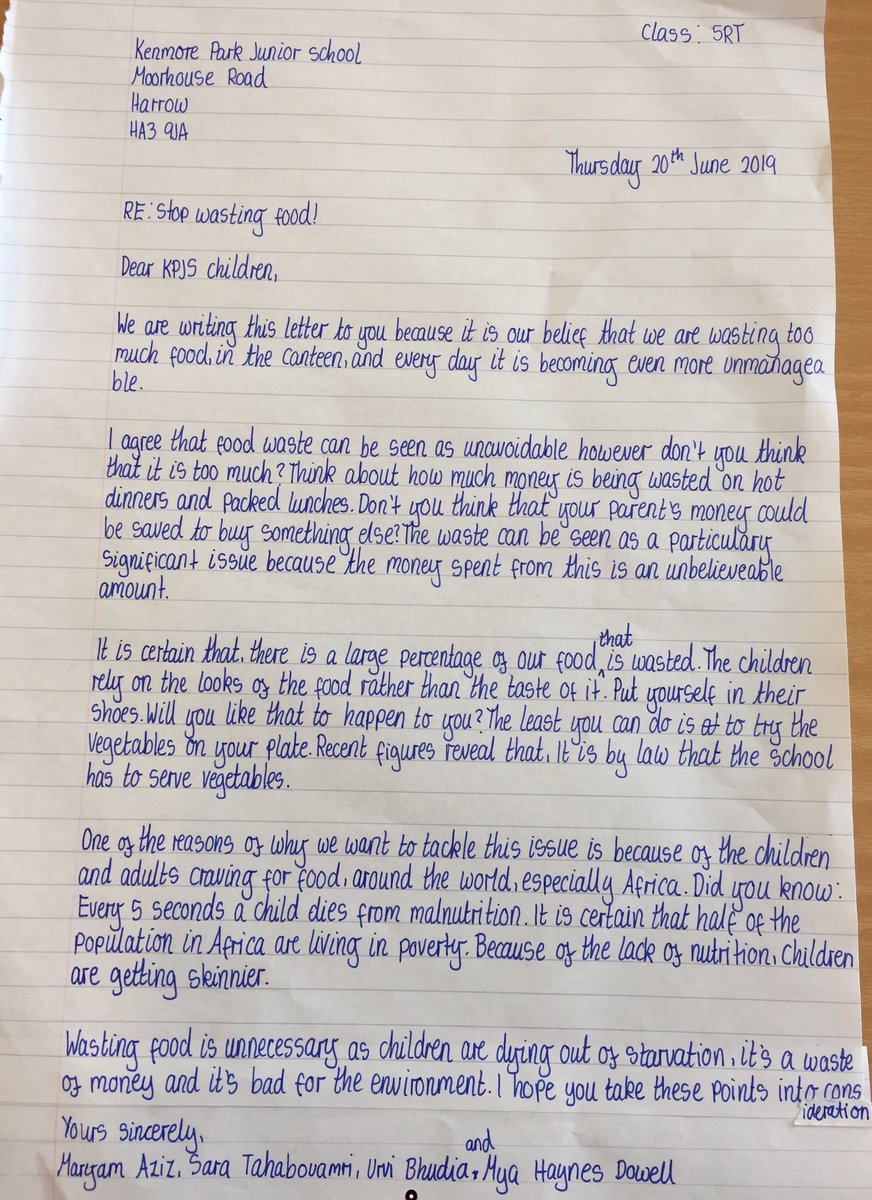 Class: 5RT
Kenmore Park Junior school
Moorhouse Road
Harrow
HA3 9JA
Thursday 20th June 2019
RE: Stop wasting food!
Dear KPJS children,
We are writing this letter to you because it is our belief that we are wasting too
much food, in the canteen, and every day it is becoming even more unmanagea
ble.
I agree that food waste can be seen as unavoidable however don't you think
that it is too much? Think about how much money is being wasted on hot
dinners and packed lunches. Don't you think that your parent's money could
be saved to buy something else? The waste can be seen as a particulary
significant issue because the money spent from this is an unbelieveable
amount.
It is certain that, there is a large percentage of our food that is wasted. The children
rely on the looks of the food rather than the taste of it. Put yourself in their
shoes. Will you like that to happen to you? The least you can do is to try the
vegetables on your plate. Recent figures reveal that, It is by law that the school
has to serve vegetables.
One of the reasons of why we want to tackle this issue is because of the children
and adults craving for food, around the world, especially Africa. Did you know:
Every 5 seconds a child dies from malnutrition. It is certain that half of the
population in Africa are living in poverty. Because of the lack of nutrition, children
are getting skinnier.
Wasting food is unnecessary as children are dying out of starvation, it's a waste
of money and it's bad for the environment. I hope you take these points into cons
ideration
Yours sincerely,
Maryam Aziz, Sara Tahabouamri, Urvi Bhudia, and Mya Haynes Dowell